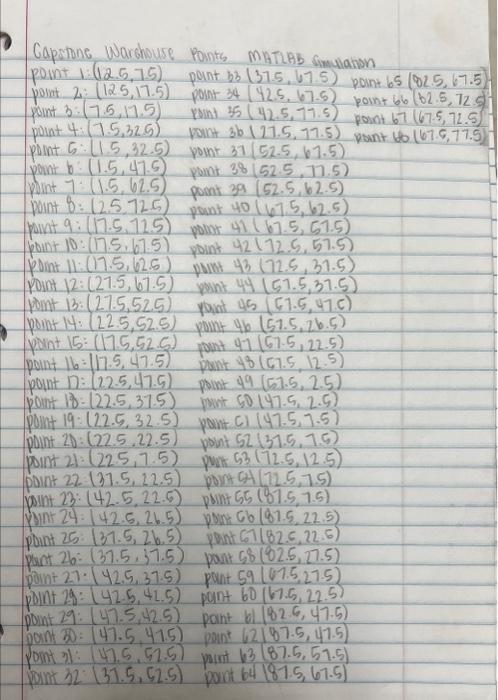 Capstone Warehouse Points MATLAB Simulation
point 1: (12.5, 7.5)
point 2: (12.5, 17.5)
point 3: (7.5, 17.5)
point 4: (7.5, 32.5)
point 5: (1.5, 32.5)
point 6: (1.5, 47.5)
point 7: (1.5, 62.5)
point 8: (2.5, 72.5)
point 9: (17.5, 72.5)
point 10: (17.5, 67.5)
point 11: (17.5, 62.5)
point 12: (27.5, 67.5)
point 13: (27.5, 52.5)
point 14: (22.5, 52.5)
point 15: (17.5, 52.5)
point 16: (17.5, 47.5)
point 17: (22.5, 47.5)
point 18: (22.5, 37.5)
point 19: (22.5, 32.5)
point 20: (22.5, 22.5)
point 21: (22.5, 7.5)
point 22: (37.5, 22.5)
point 23: (42.5, 22.5)
point 24: (42.5, 26.5)
point 25: (37.5, 26.5)
point 26: (37.5, 37.5)
point 27: (42.5, 37.5)
point 28: (42.5, 42.5)
point 29: (47.5, 42.5)
point 30: (47.5, 47.5)
point 31: (47.5, 52.5)
point 32: (37.5, 52.5)
point 33 (37.5, 67.5)
point 34 (42.5, 67.5)
point 35 (42.5, 77.5)
point 36 (27.5, 77.5)
point 37 (52.5, 67.5)
point 38 (52.5, 77.5)
point 39 (52.5, 62.5)
point 40 (67.5, 62.5)
point 41 (67.5, 57.5)
point 42 (72.5, 57.5)
point 43 (72.5, 37.5)
point 44 (57.5, 37.5)
point 45 (57.5, 47.5)
point 46 (57.5, 26.5)
point 47 (57.5, 22.5)
point 48 (57.5, 12.5)
point 49 (57.5, 2.5)
point 50 (47.5, 2.5)
point 51 (47.5, 7.5)
point 52 (37.5, 7.5)
point 53 (72.5, 12.5)
point 54 (72.5, 7.5)
point 55 (87.5, 7.5)
point 56 (87.5, 22.5)
point 57 (82.5, 22.5)
point 58 (82.5, 27.5)
point 59 (67.5, 27.5)
point 60 (67.5, 22.5)
point 61 (82.5, 47.5)
point 62 (87.5, 47.5)
point 63 (87.5, 57.5)
point 64 (87.5, 67.5)
point 65 (82.5, 67.5)
point 66 (82.5, 72.5)
point 67 (67.5, 72.5)
point 68 (67.5, 77.5)